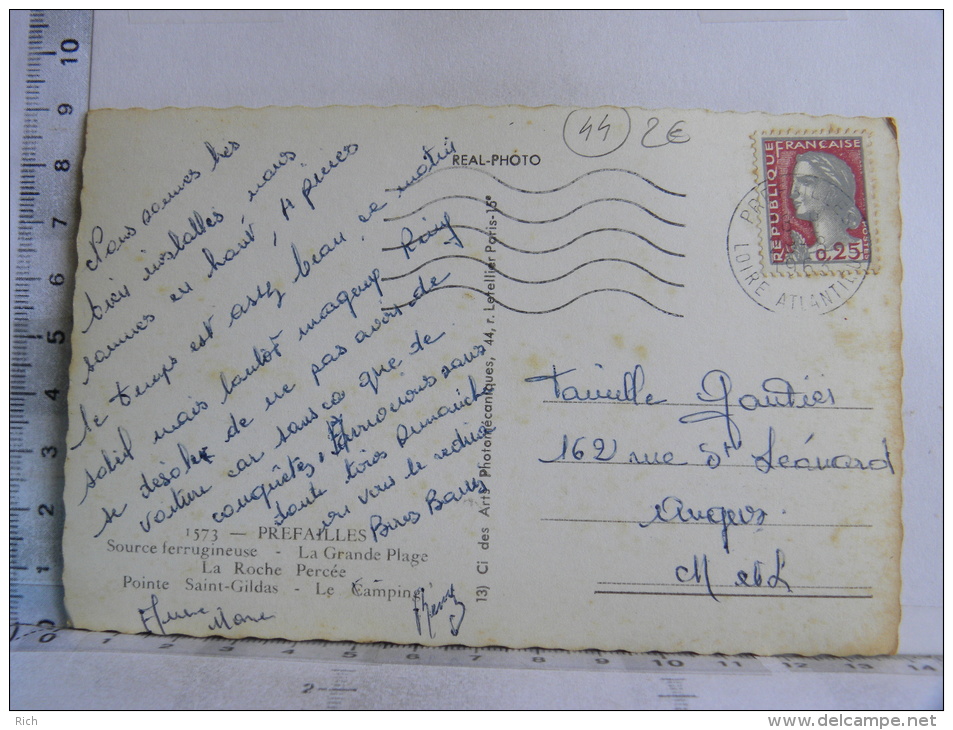 44 2€
REAL-PHOTO
REPUBLIQUE FRANCAISE
POSTES
0,25
LOIRE ATLANTIQUE
Nous sommes très
bien installés nous
sommes en haut, A Prunes
le temps est assez beau. ce matin
soleil mais tantôt nuageux Rémy
se désole de ne pas avoir de
voiture car sans ça que de
conquêtes,
tous trois Dimanche
on vous le redira
Bons Baisers
Anne Marie
Rémy
1573 — PREFAILLES
Source ferrugineuse - La Grande Plage
La Roche Percée
Pointe Saint-Gildas - Le Camping
13) Ci des Arts Photomécaniques, 44, r. Letellier Paris-15e
Famille Gautier
162 rue St Léonard
Angers
M et L
10
9
8
7
6
5
4
3
2
1
0
0 1 2 3 4 5 6 7 8 9 10 11 12 13 14
2
Rich
www.delcampe.net